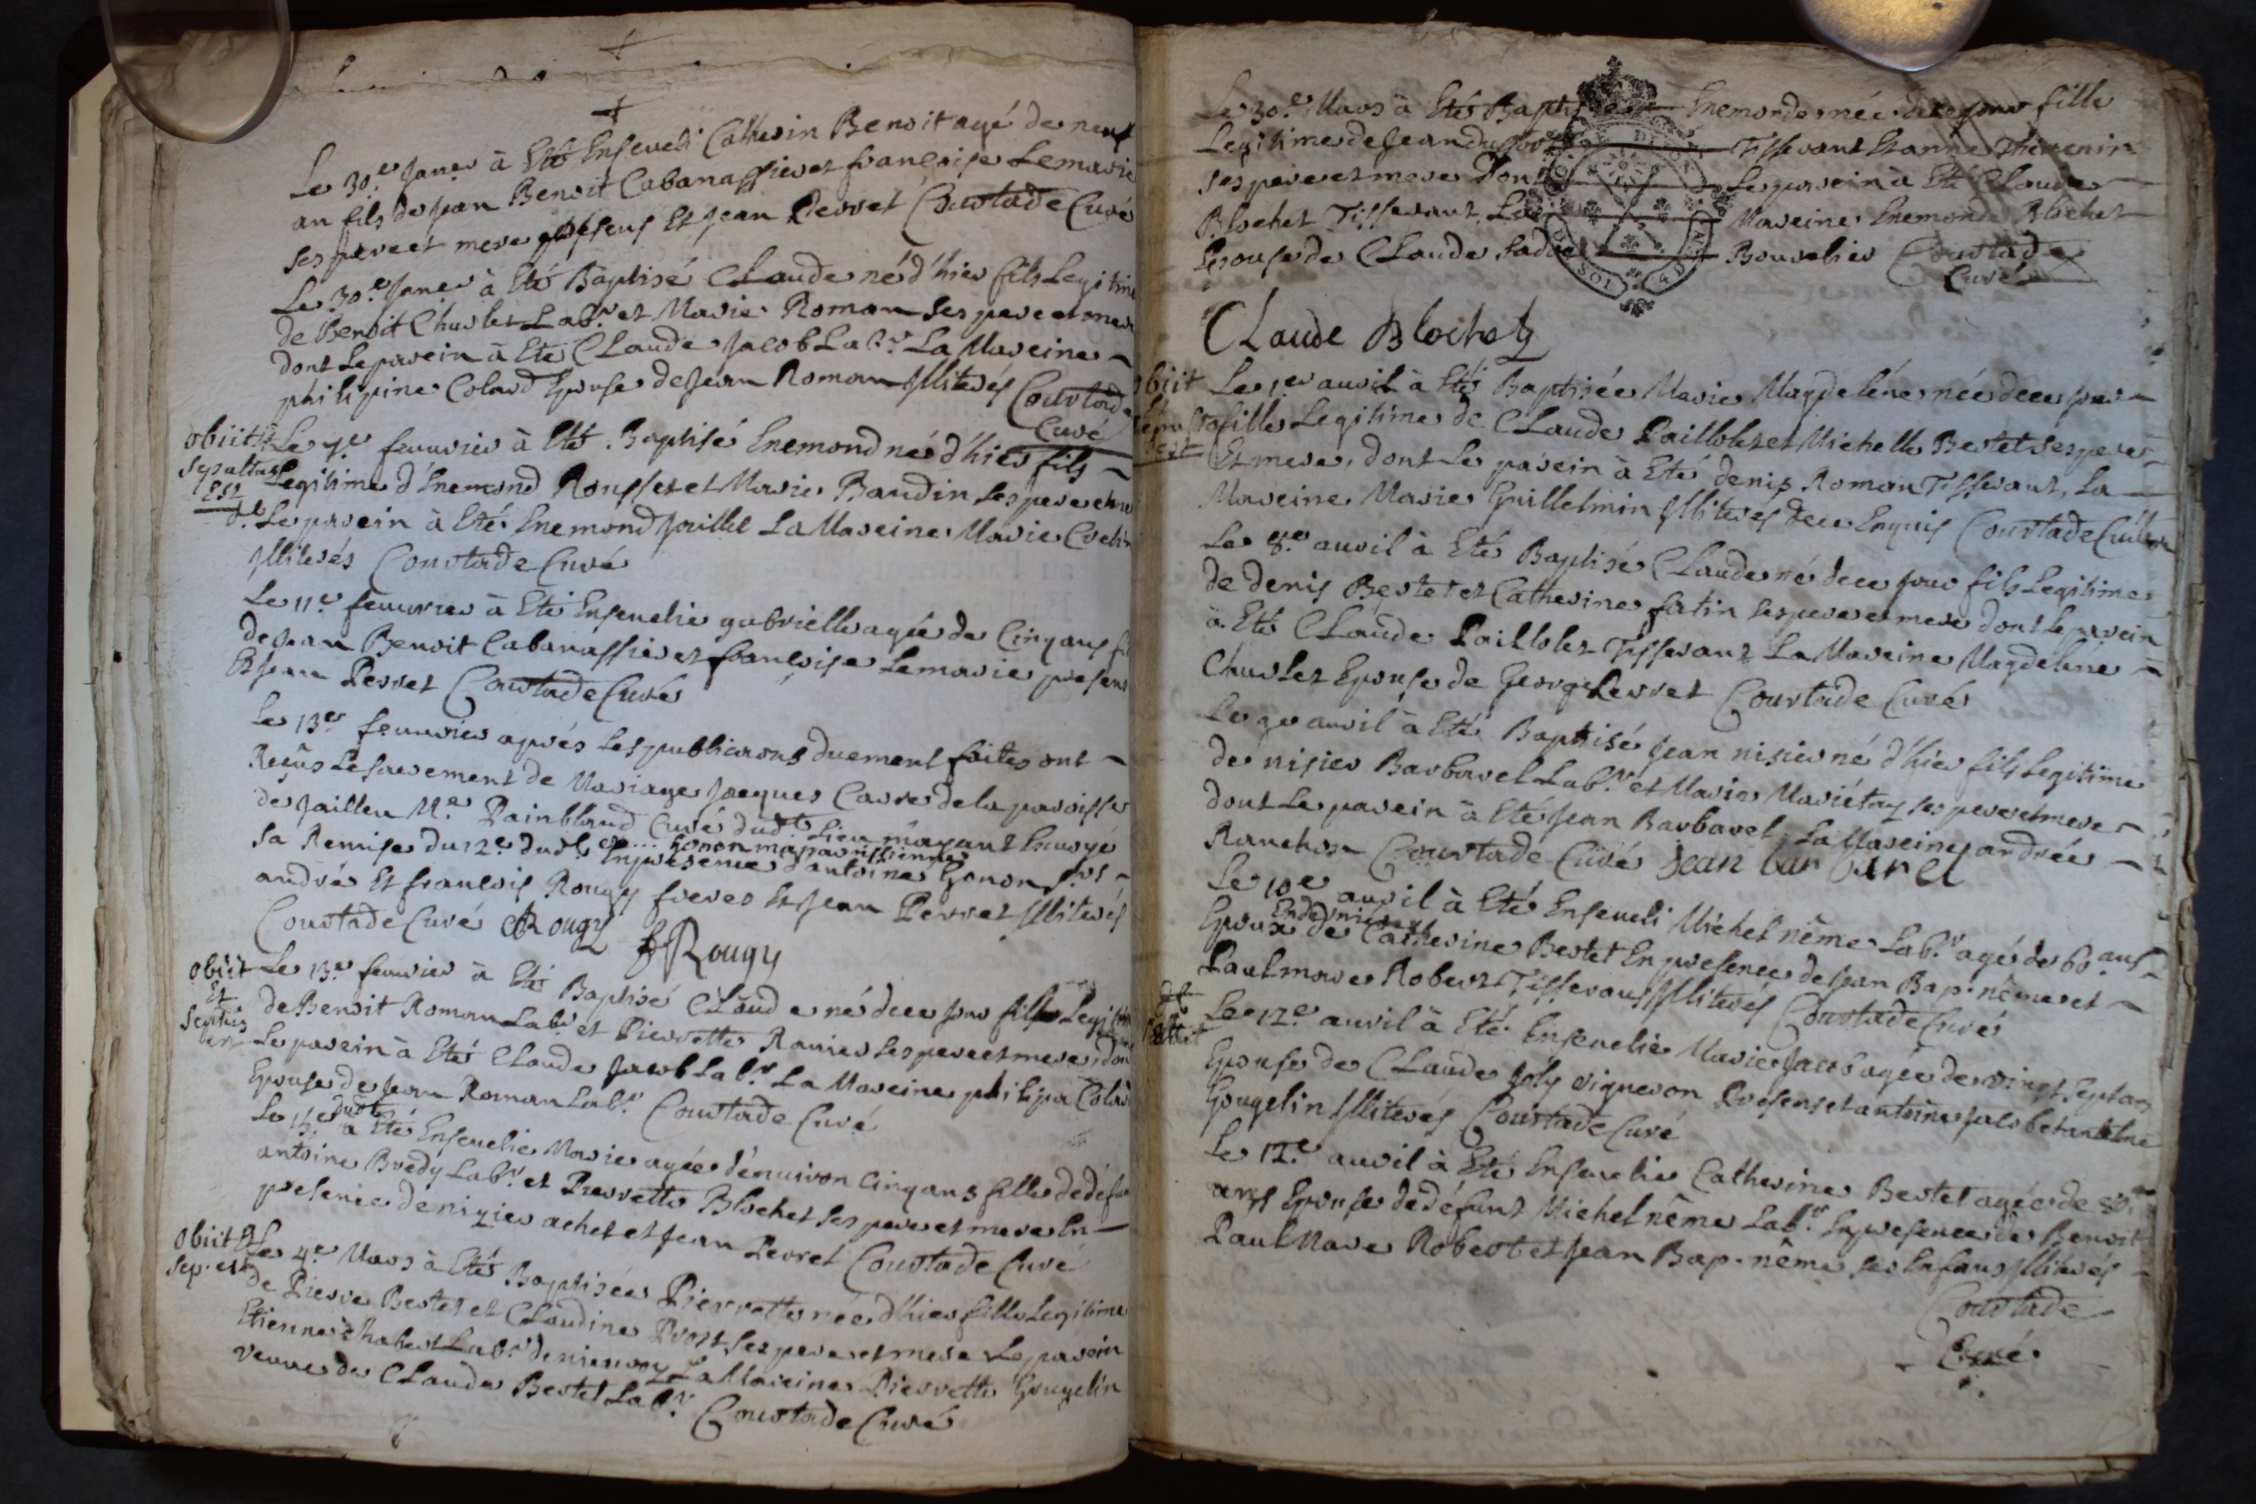 Le 30.e Janer à Eté Enseveli Catherin Benoit agé de neuf
an fils de Jean Benoit Cabanassier et françoise Lemarie
ses pere et mere présens Et Jean Perret Courtade Curé
Le 30.e Janer à Eté Baptisé Claude né d'hier fils Legitime
de Benoit Charlet Labr. et Marie Roman ses pere et mere
dont Le parein à Eté Claude Jacob Labr. La Mareine
philipine Colard Epouse de Jean Roman Illiterés Courtade
Curé
obiit Et
sepultus
Est
Le feuvrier à Eté Baptisé Enemond né d'hier fils
Legitime d'Enemond Rousset et Marie Baudin ses pere et
Le parein à Eté Enemond Jouillet La Mareine Marie
Illiterés Courtade Curé
Le 11.e feuvrier à Eté Ensevelie gabrielle agée de Cinq ans
de Jean Benoit Cabanassier et françoise Lemarie presens
Et Jean Perret Courtade Curé
Le 13.er feuvrier aprés Les publications duement faites ont
Reçus Le sacrement de Mariage Jacques Carre de la paroisse
de Jaillen M.e Painbland Curé dudt. Lieu m'ayant Envoyé
Sa Remise du 12.e dud. et .... Gonon ma paroissienne
En presence d'antoine Gonon
andré Et françois Rougy freres Et Jean Perret Illiterés
Courtade Curé Rougy
f Rougy
obiit
Et
Le 13.e feuvrier à Eté Baptisé Claude né dece jour fils Legitime
de Benoit Roman Labr. et Pierrette Ravier ses pere et mere, dont
Le parein à Eté Claude Jacob Labr. La Mareine philipa Colard
Epouse de Jean Roman Labr. Courtade Curé
Le dudt. à Eté Ensevelie Marie agée d'environ Cinq ans fille de défunt
antoine Bredy Labr. et Pierrette Blochet ses pere et mere En
presence de nizier achet et Jean Perret Courtade Curé
obiit Et
sep. est
Le 4.e Mars à Eté Baptisée Pierrette née d'hier fille Legitime
de Pierre Bertet et Claudine Prost ses pere et mere Le parein
Etienne Chabert Labr. de La Mareine Pierrette Gougelin
veuve de Claude Bertet Labr. Courtade Curé
Le 30.e Mars à Eté Baptisée Enemonde née dece jour fille
Legitime de Jean Tisserant Et anne Thevenin
ses pere et mere Dont Le parein à Eté Claude
Blochet Tisserant, La Mareine Enemonde Blochet
Epouse de Claude Bourelier Courtade
Curé
Claude Blochet
obiit
Le 1.er avril à Eté Baptisée Marie Magdeléne née dece jour
fille Legitime de Claude Paillolet et Michelle Bertet ses pere
Et mere, dont Le parein à Eté denis Roman Tisserant, La
Mareine Marie Guillelmin Illiterés dece Enquis Courtade Curé
Le 8.e avril à Eté Baptisé Claude né dece jour fils Legitime
de denis Bertet et Catherine fatin ses pere et mere dont Le parein
à Eté Claude Paillolet Tisserant La Mareine Magdeléne
Charlet Epouse de George Perret Courtade Curé
Le 9e avril à Eté Baptisé Jean nisier né d'hier fils Legitime
de nisier Barbarel Labr. et Marie Mariétay ses pere et mere
dont Le parein à Eté Jean Barbarel, La Mareine andrée
Ranchon Courtade Curé Jean barbarel
Le 10.e avril à Eté Enseveli Michel nême Labr. agé de 60. ans
Epoux de Catherine Bertet En presence de Jean Bap. nême et
Paulmare Robert Tisserans Illiterés Courtade Curé
Le 12.e avril à Eté Ensevelie Marie Jacob agée de vingt sept ans
Epouse de Claude Joly vigneron Presens et antoine Jacob et antoine
Gougelin Illiterés Courtade Curé
Le 12.e avril à Eté Ensevelie Catherine Bertet agée de 80
ans Epouse de défunt Michel nême Labr. En presence de Benoit
Paul Mare Robert et Jean Bap. nême ses Enfans Illiterés
Courtade
Curé